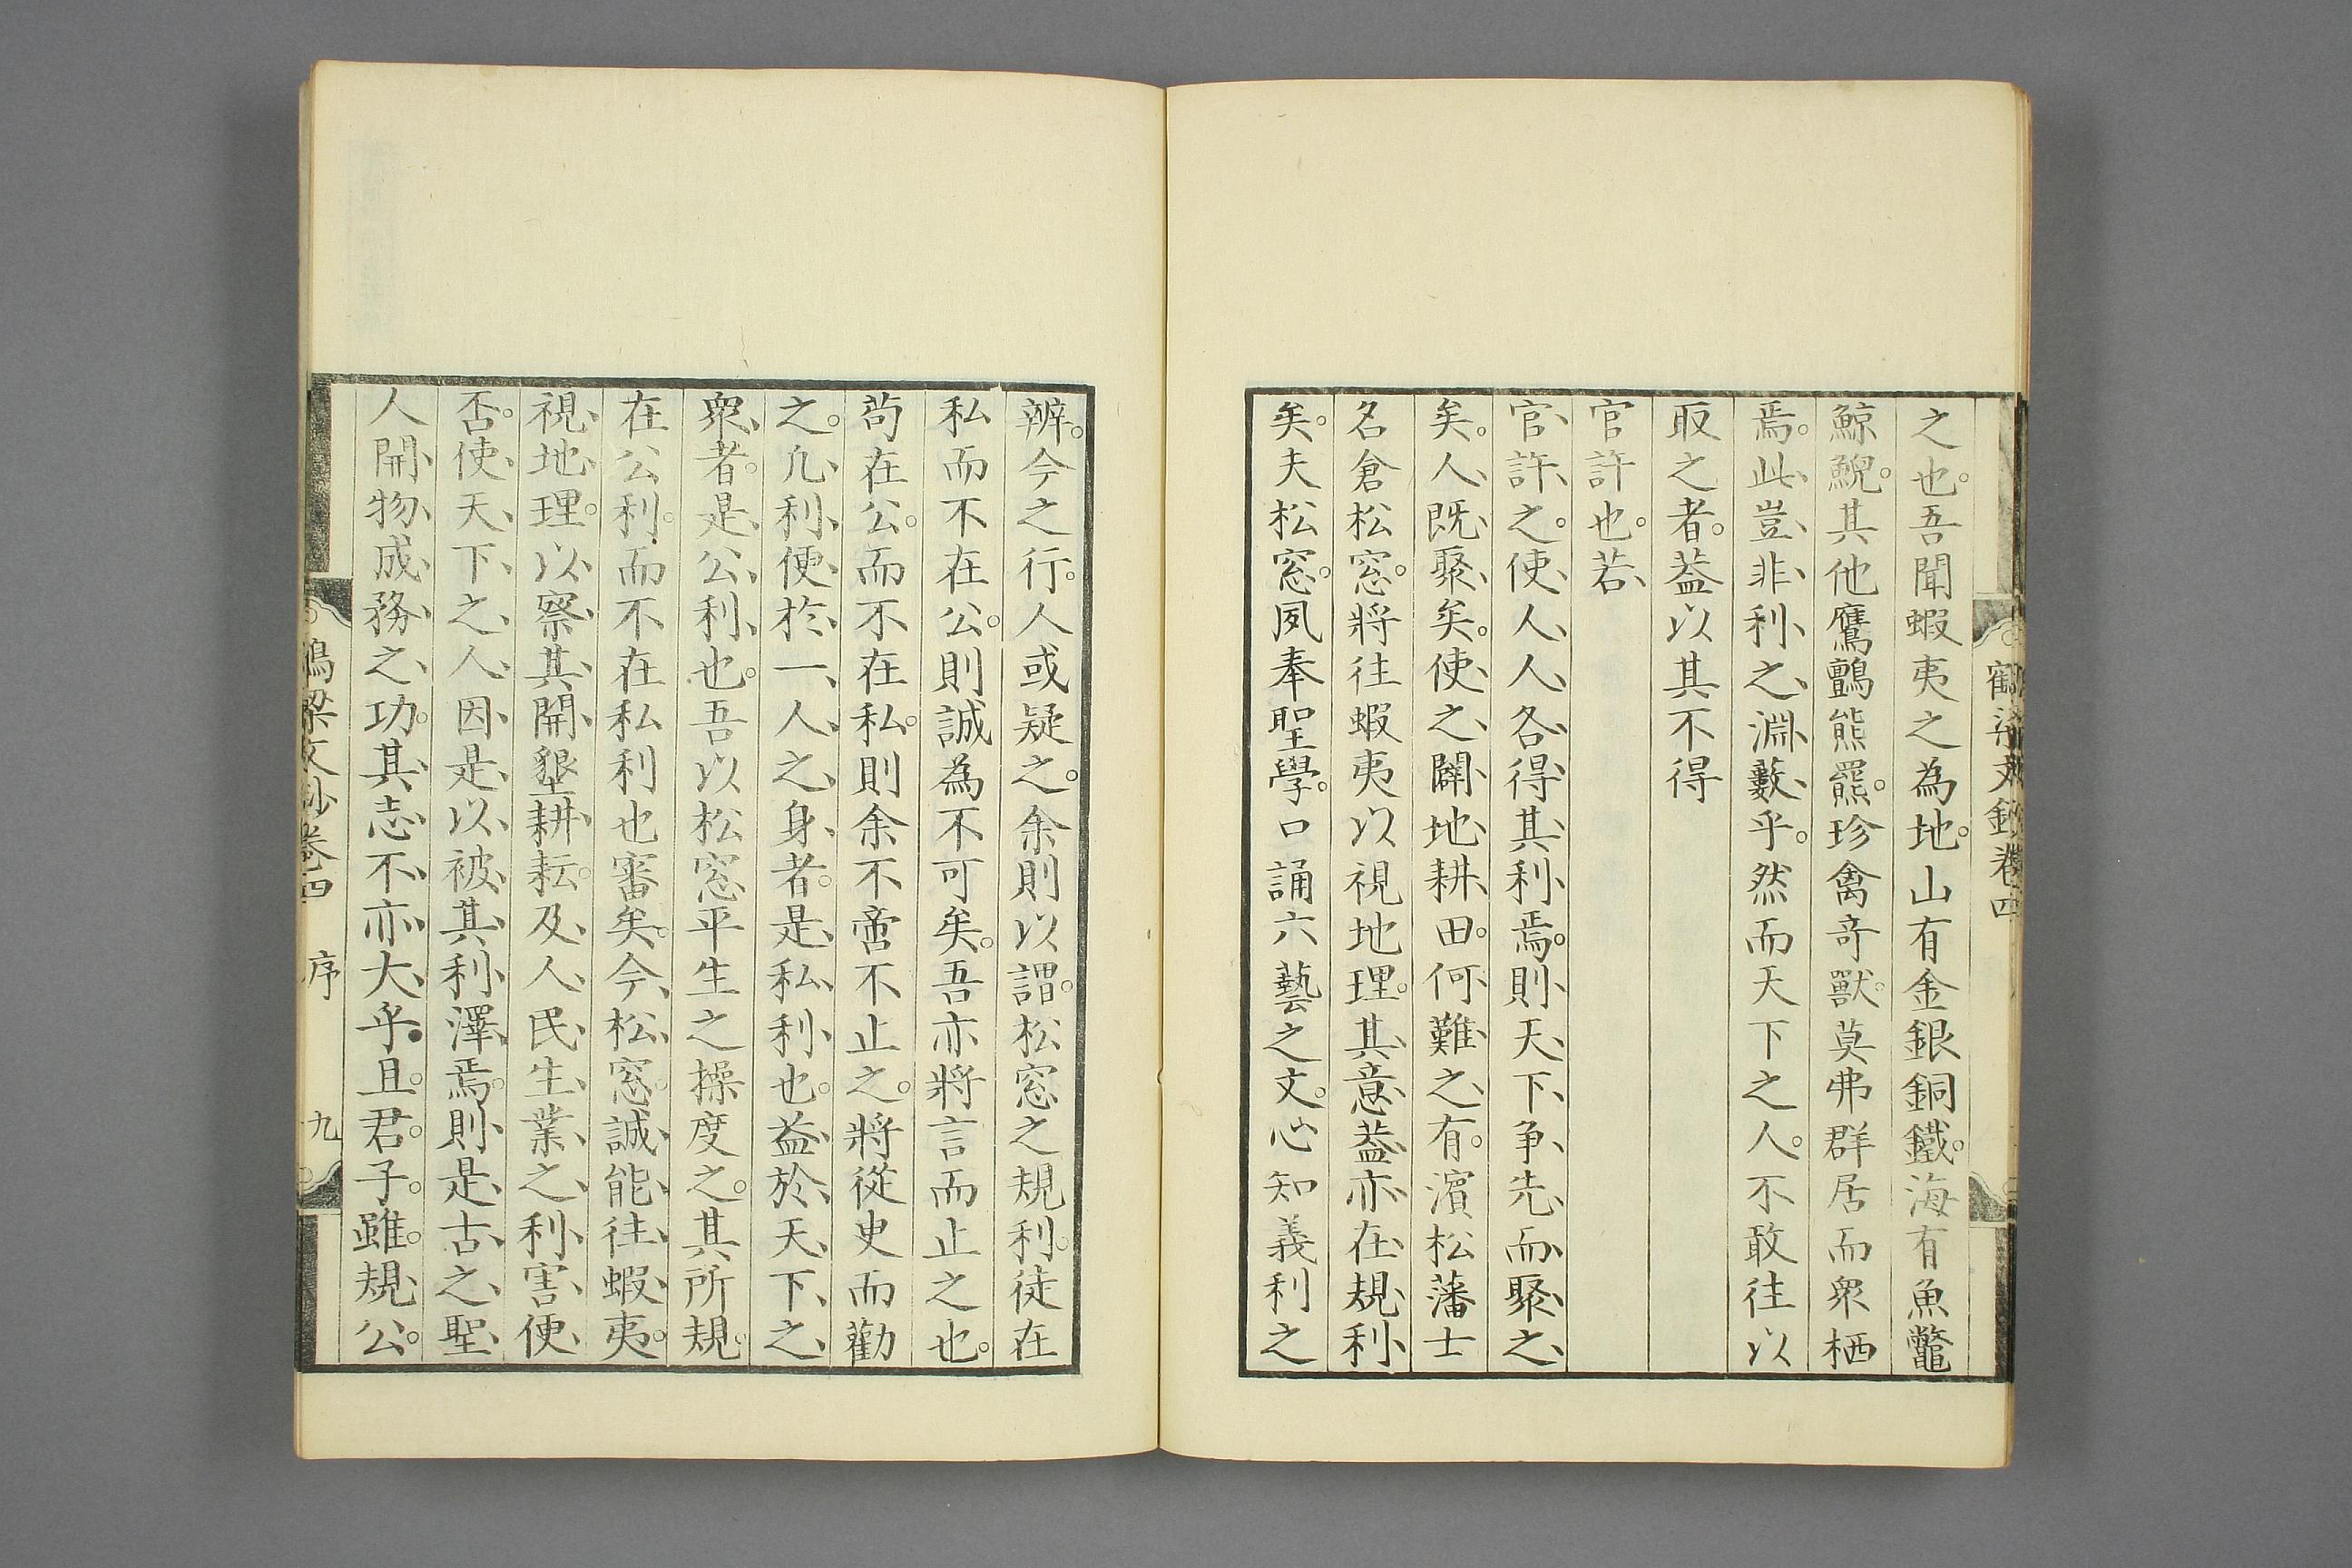 之也。吾聞蝦夷之為地。山有金銀銅鐵。海有魚鼈
鯨鯢。其他鷹鸇熊羆。珍禽奇獸。莫弗群居而衆栖
焉。此豈非利之淵藪乎。然而天下之人。不敢往以
取之者。葢以其不得
官許也。若
官許之。使人人各得其利焉。則天下争先而聚之
矣。人既聚矣。使之闢地耕田。何難之有。濱松藩士
名倉松窓。將往蝦夷以視地理。其意葢亦在規利
矣。夫松窓。夙奉聖學。口誦六藝之文。心知義利之
辨。今之行。人或疑之。余則以謂。松窓之規利。徒在
私而不在公。則誠為不可矣。吾亦將言而止之也。
苟在公。而不在私。則余不啻不止之。將從臾而勸
之。凢利便於一人之身者。是私利也。葢於天下之
衆者。是公利也。吾以松窓平生之操度之。其所規。
在公利。而不在私利也審矣。今松窓。誠能往蝦夷。
視地理。以察其開墾耕耘。及人民生業之利害便
否。使天下之人因是以被其利澤焉。則是古之聖
人開物成務之功。其志不亦大乎。且君子雖規公。
鶴梁文鈔卷四 序 九